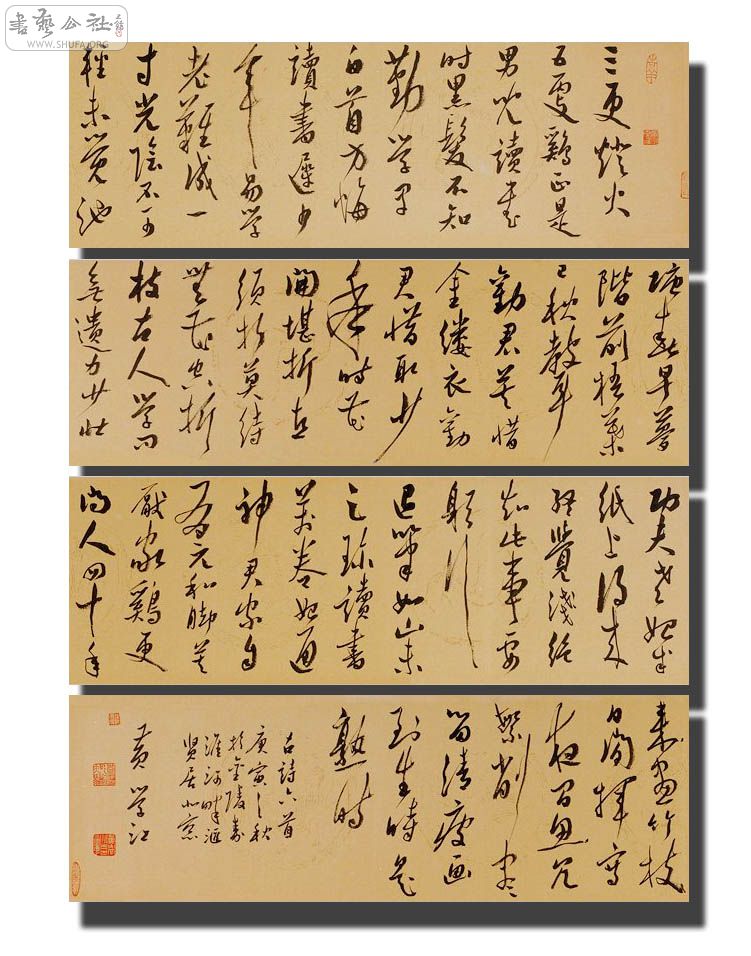 書藝公社
WWW.SHUFAJ.ORG
三更燈火
五更鷄正是
男兒讀書
时黑髮不知
勤学早
白首方悔
讀書遲少
年易学
老難成一
寸光陰不可
輕未覺池
塘春草夢
階前梧葉
已秋聲
勸君莫惜
金縷衣勸
君惜取少
年时花
開堪折直
須折莫待
無花空折
枝古人学问
無遗力少壯
功夫老始成
纸上得来
终覺淺绝
知此事要
躬行
退筆如山未
足珍讀書
萬卷始通
神君家自
有元和脚莫
厭家鷄更
问人四十年
来畫竹枝
日間揮寫
夜间思冗
繁削盡
留清瘦画
到生時是
熟時
古詩六首
庚寅之秋
於金陵秦
淮河畔滙
賢居北窓
黄学江